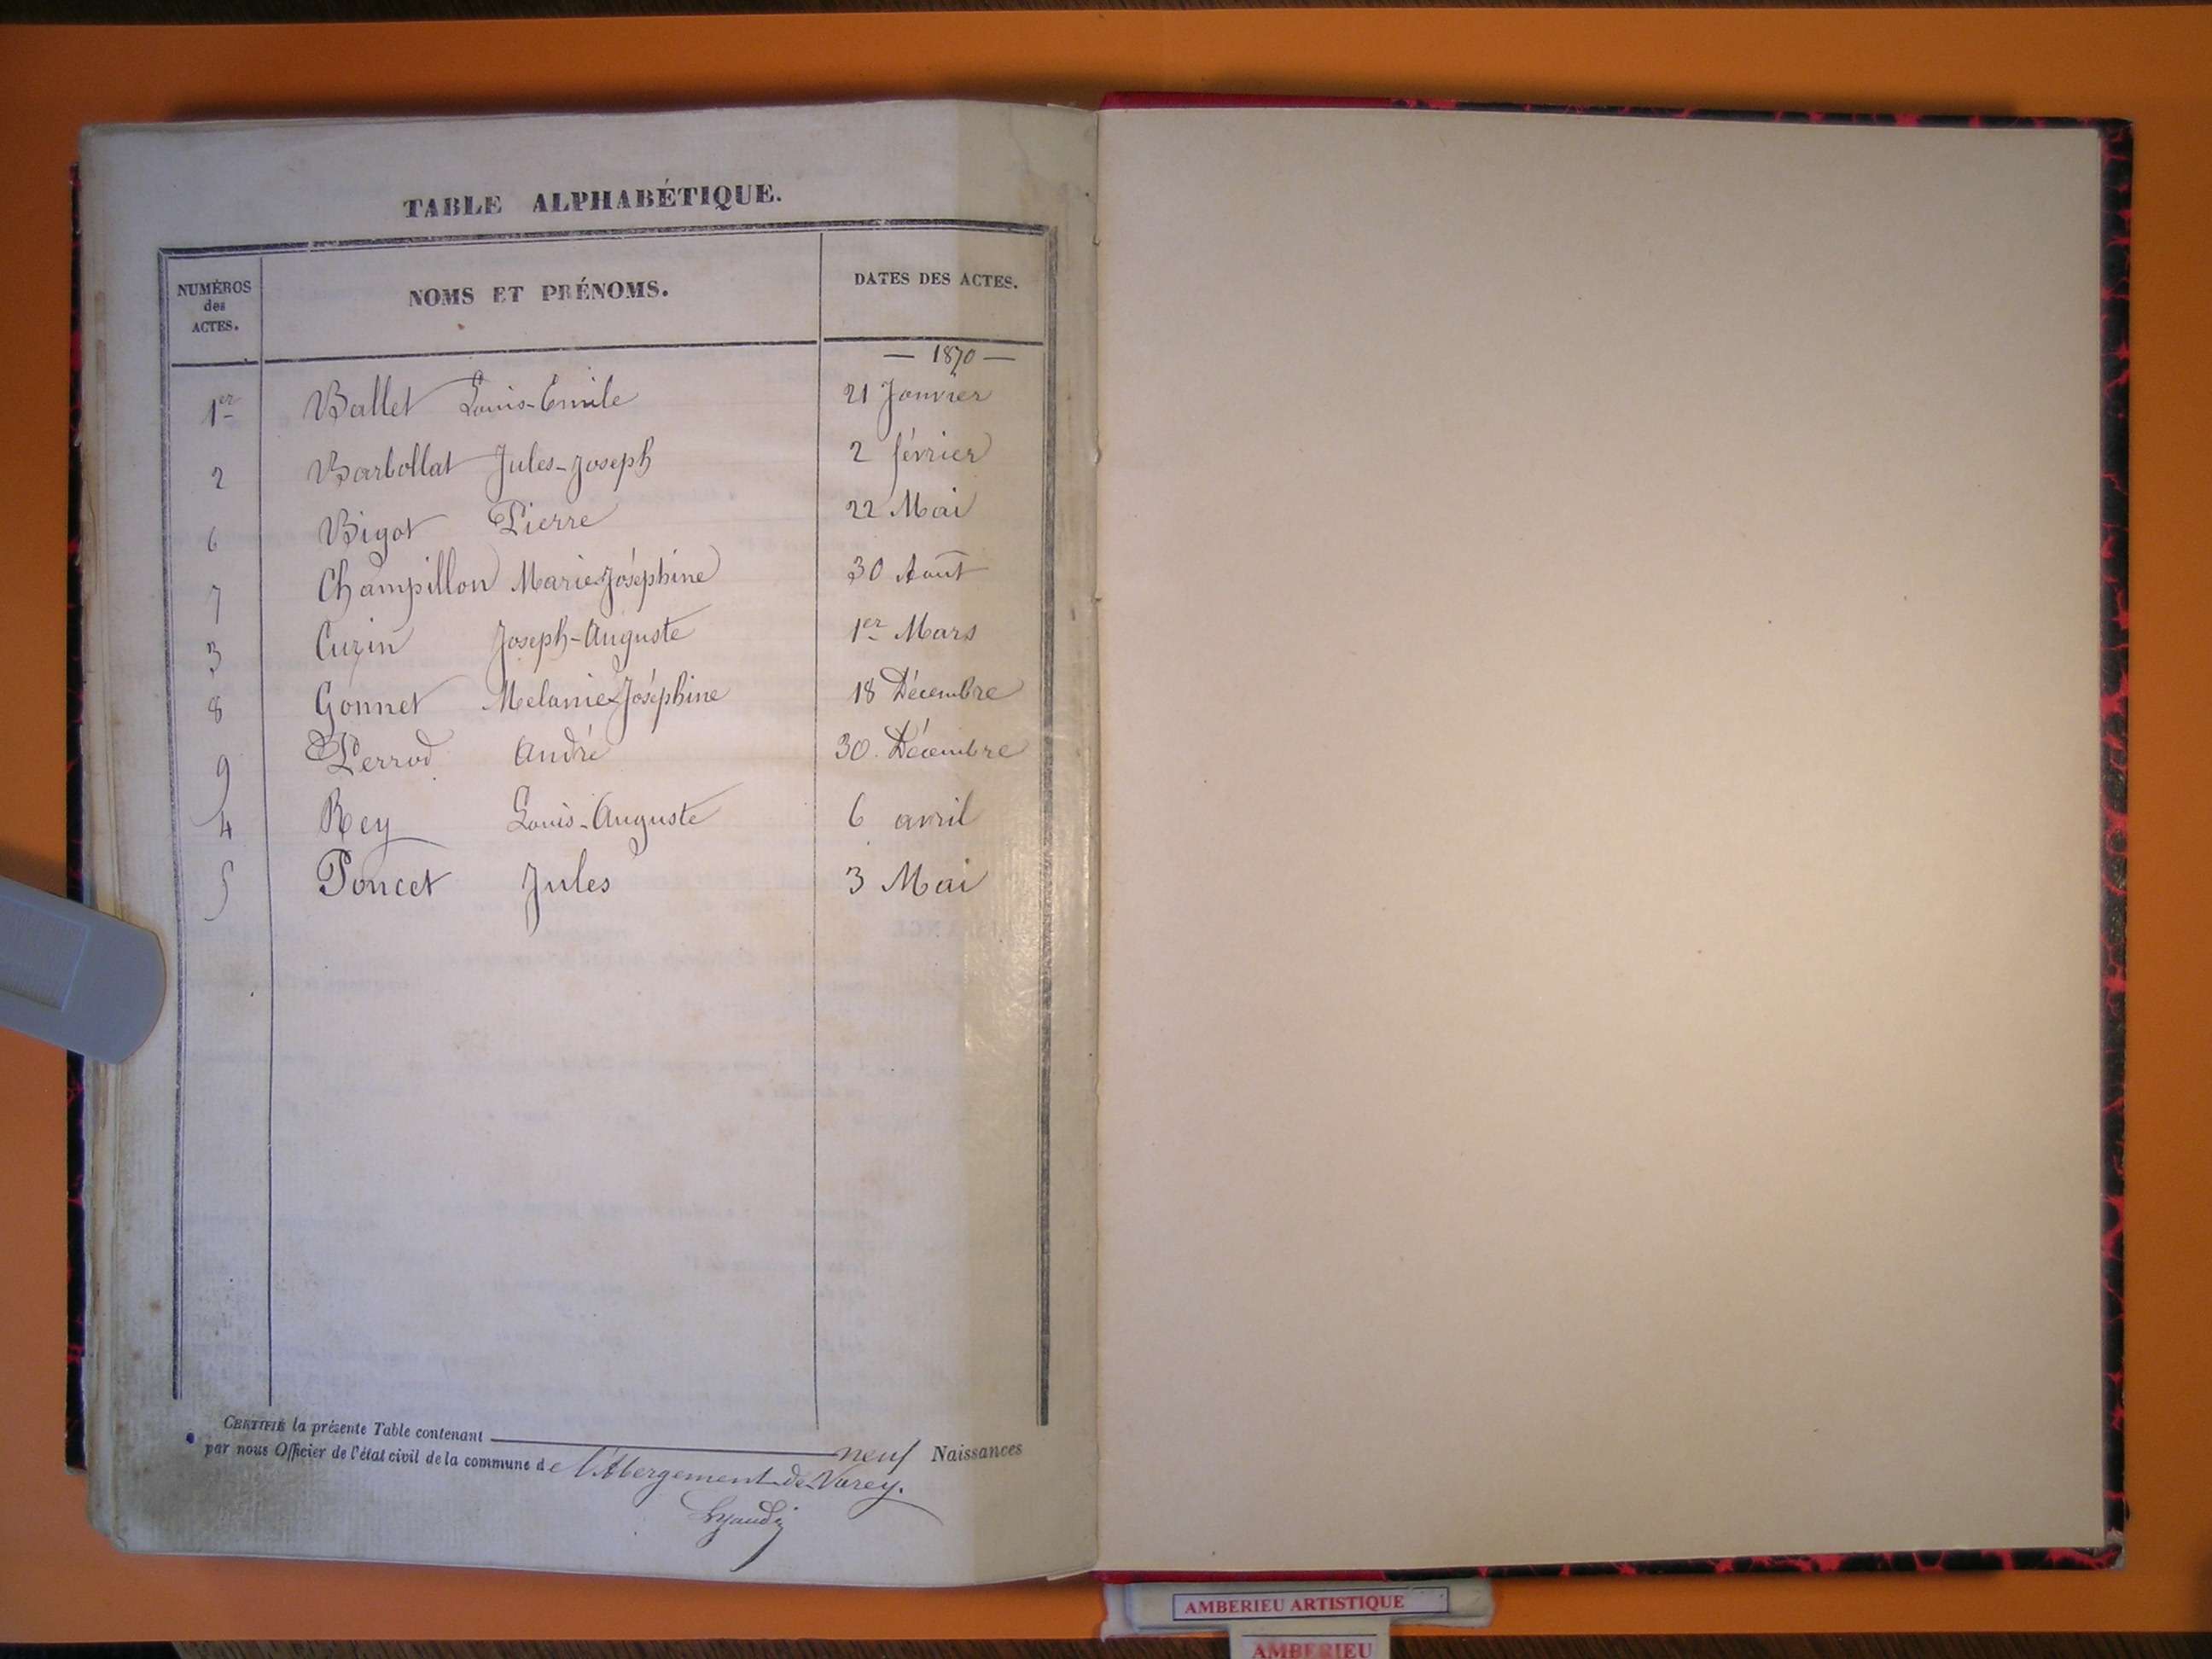 TABLE ALPHABÉTIQUE.
NUMÉROS
des
ACTES.
NOMS ET PRÉNOMS.
DATES DES ACTES.
— 1870 —
1er Ballet Louis-Emile 21 Janvier
2 Barbollat Jules-Joseph 2 février
6 Bigot Pierre 22 Mai
7 Champillon Marie-Joséphine 30 Août
3 Cuzin Joseph-Auguste 1er Mars
8 Gonnet Melanie-Joséphine 18 Décembre
9 Perrod André 30 Décembre
4 Rey Louis-Auguste 6 avril
5 Poncet Jules 3 Mai
CERTIFIÉ la présente Table contenant neuf Naissances
par nous Officier de l'état civil de la commune de l'Abergement-de-Varey.
AMBERIEU ARTISTIQUE
AMBERIEU